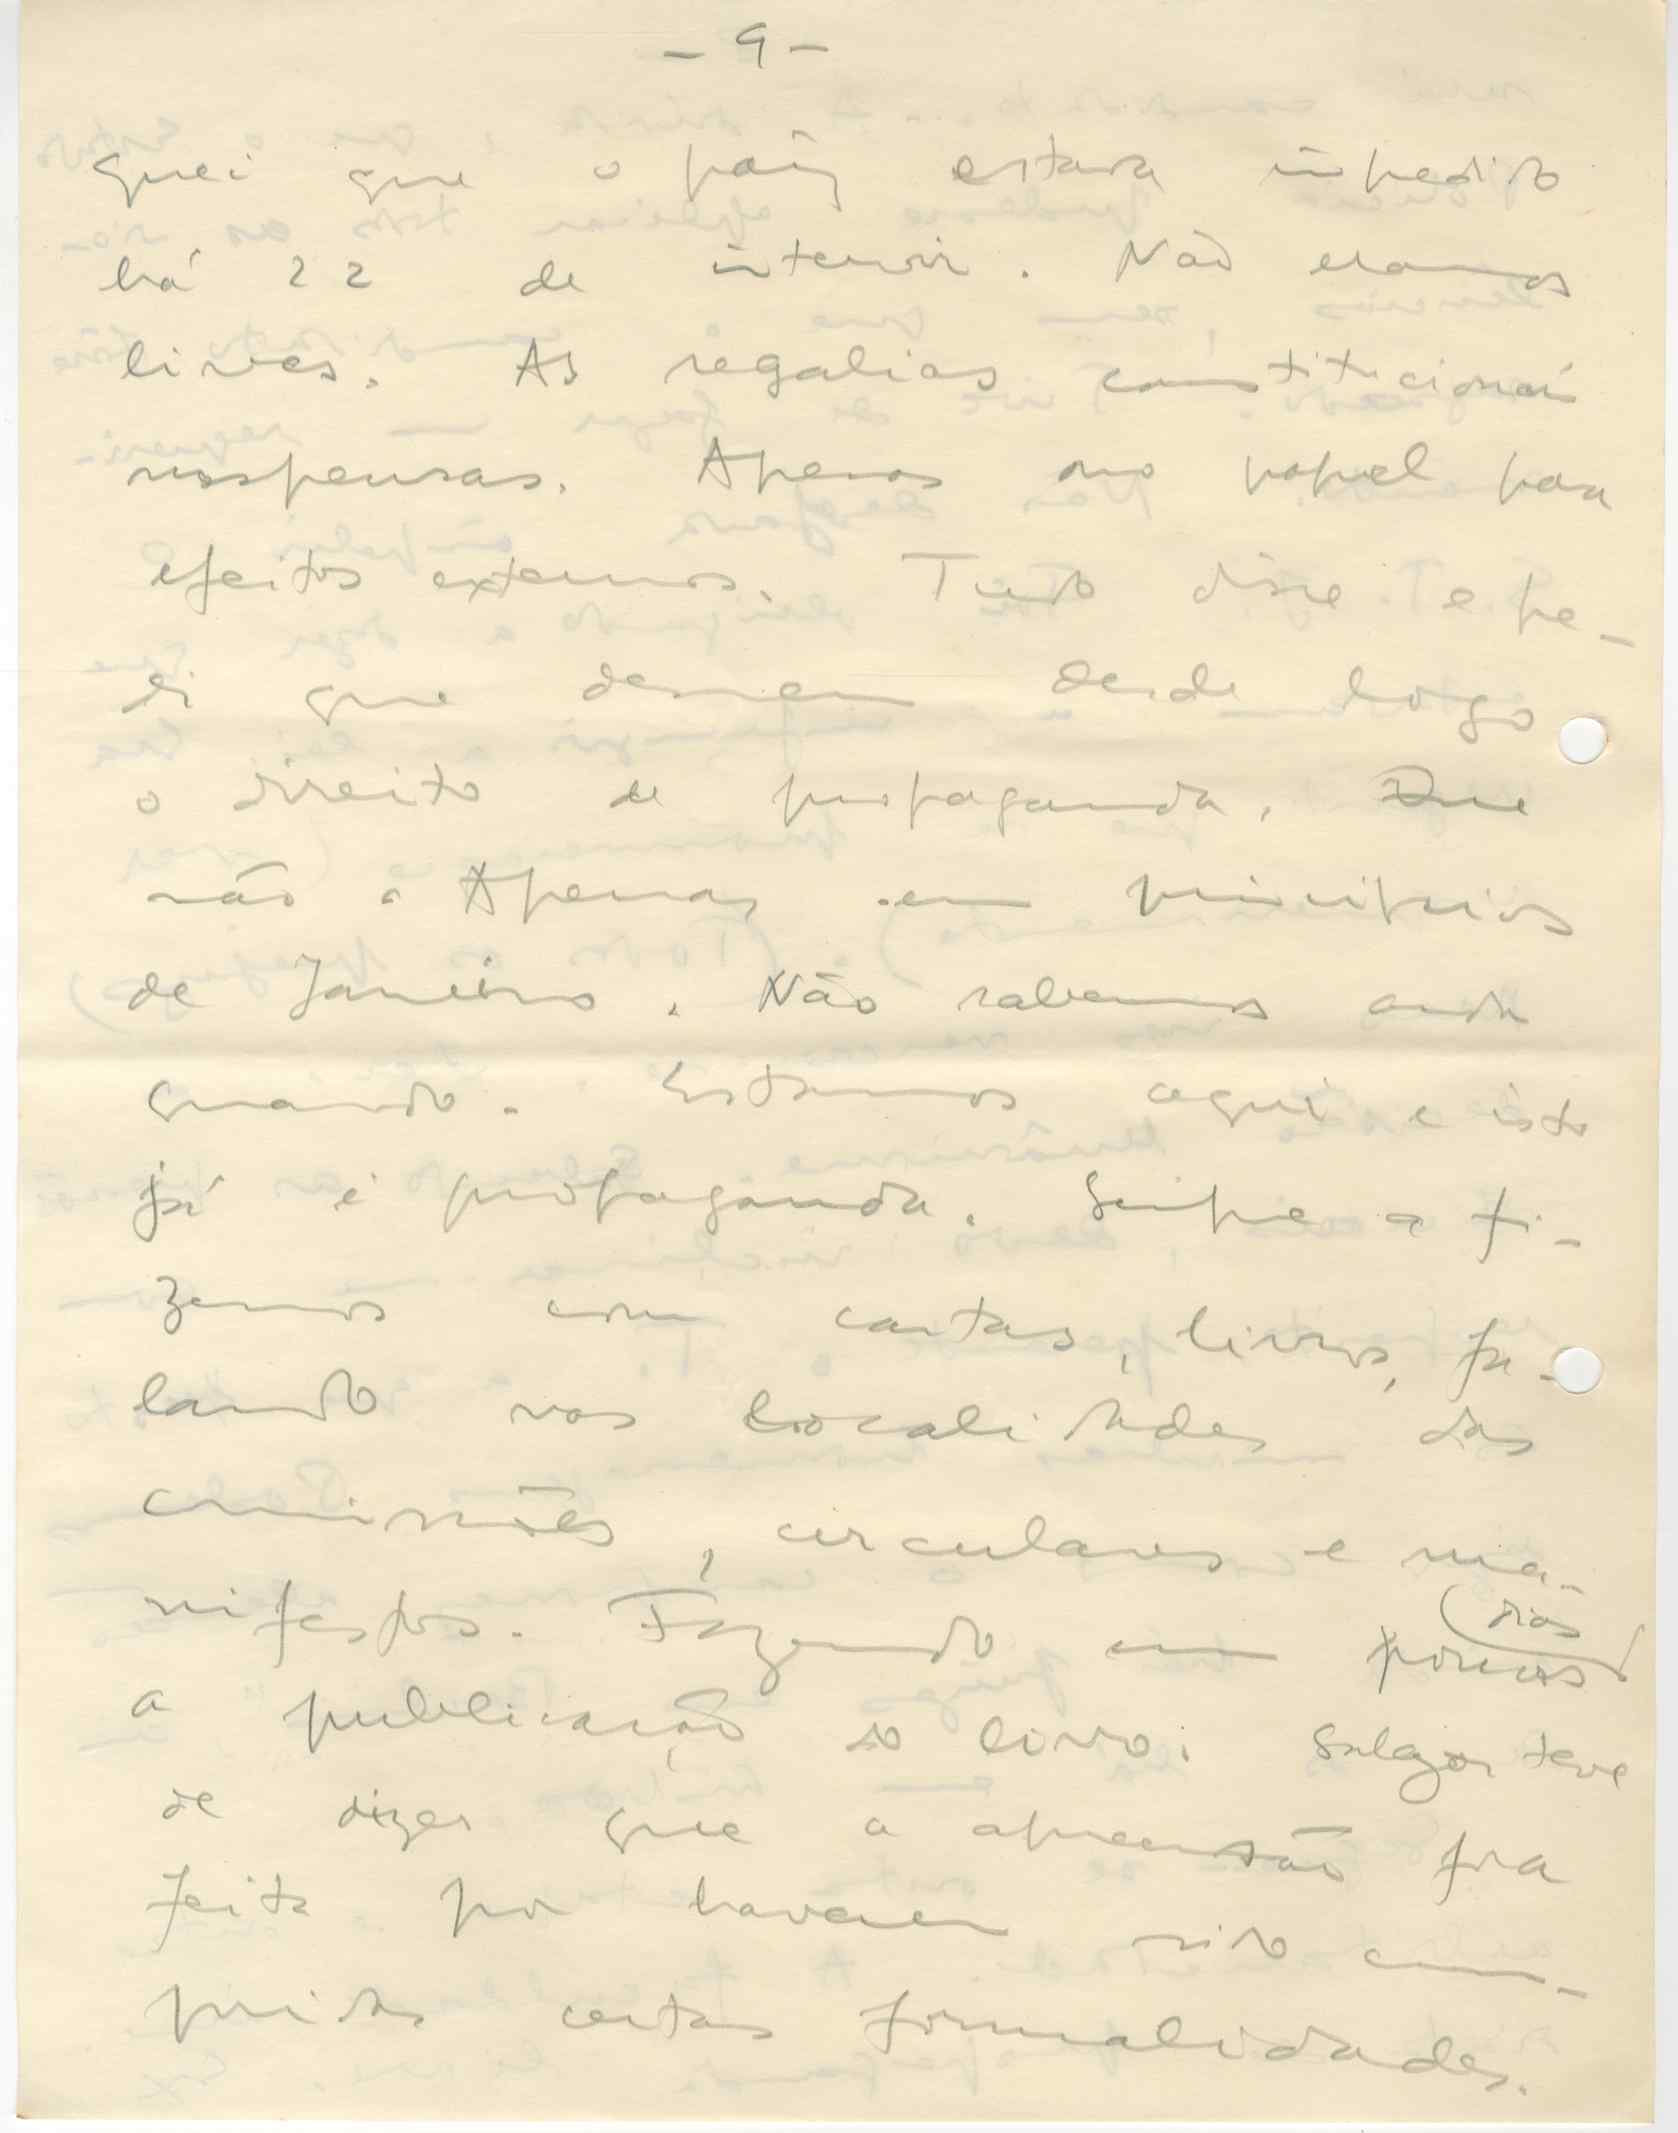 - 9 -
quei que o paiz estava impedido
há 22 de intervir. Não eramos
livres. As regalias constitucionais
suspensas. Apenas no papel para
efeitos externos. Tudo disse e pe-
di que dessem desde logo
o direito de propaganda. Que
não. Apenas em principios
de Janeiro. Não sabemos ainda
quando. Estamos aqui e isto
já é propaganda. Sempre a fi-
zemos com cartas, livros, fa-
lando nas localidades das
comissões, circulares e ma-
nifestos. Fazendo em poucos dias
a publicação do livro. Salazar teve
de dizer que a apreensão fora
feita por haverem sido cum-
pridas certas formalidades.